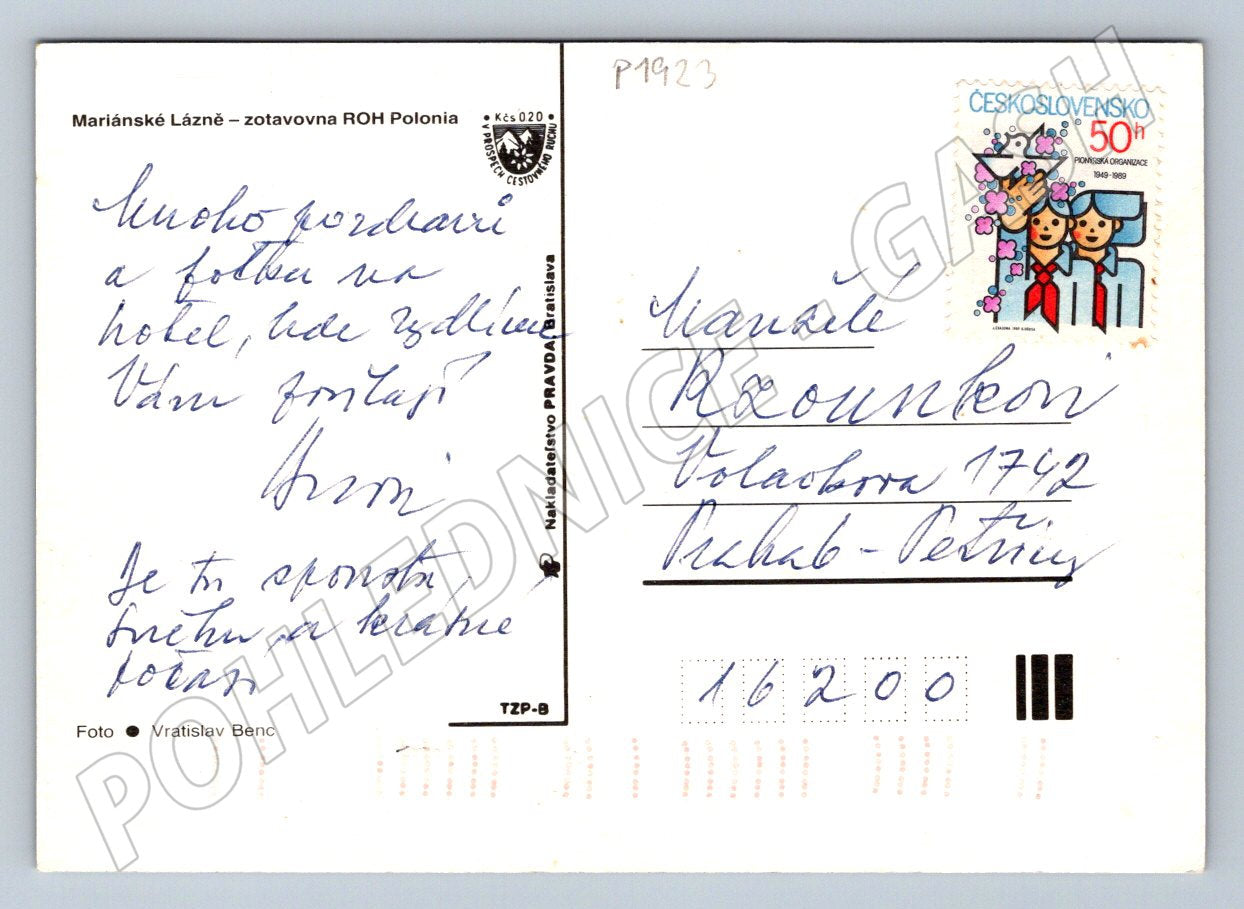 P1923
Mariánské Lázně – zotavovna ROH Polonia
• Kčs 0.20 •
V PROSPECH CESTOVNÉHO RUCHU
Mnoho pozdravů
a fotku na
hotel, kde bydlíme
Vám posílají
Je tu spousta
sněhu a krásné
počasí
Foto ● Vratislav Benc
TZP-B
Nakladateľstvo PRAVDA, Bratislava
ČESKOSLOVENSKO
50h
PIONÝRSKÁ ORGANIZACE
1949-1989
Manželé
Rzounkovi
Volavkova 1742
Praha 6 - Petřiny
16200
POHLEDNICE - GASH